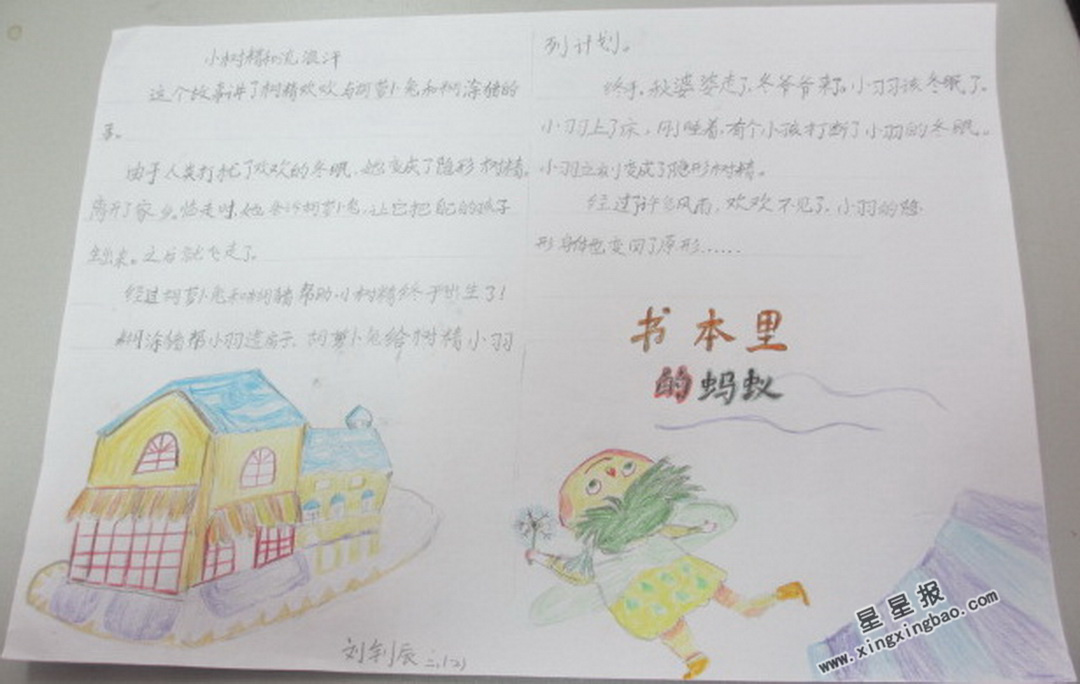 小树精和流浪汗
这个故事讲了树精欢欢与胡萝卜兔和糊涂猪的
事。
由于人类打扰了欢欢的冬眠，她变成了隐形树精，
离开了家乡。临走时，她告诉胡萝卜兔，让它把自己的孩子
生出来。之后就飞走了。
经过胡萝卜兔和糊涂猪帮助小树精终于出生了！
糊涂猪帮小羽造房子，胡萝卜兔给树精小羽
列计划。
终于，秋婆婆走了，冬爷爷来了。小羽该冬眠了。
小羽上了床，刚睡着，有个小孩打断了小羽的冬眠。
小羽立刻变成了隐形树精。
经过了许多风雨，欢欢不见了，小羽的隐
形身体也变回了原形……
书本里
的蚂蚁
刘钊辰 三、(2)
星星报
www.xingxingbao.com